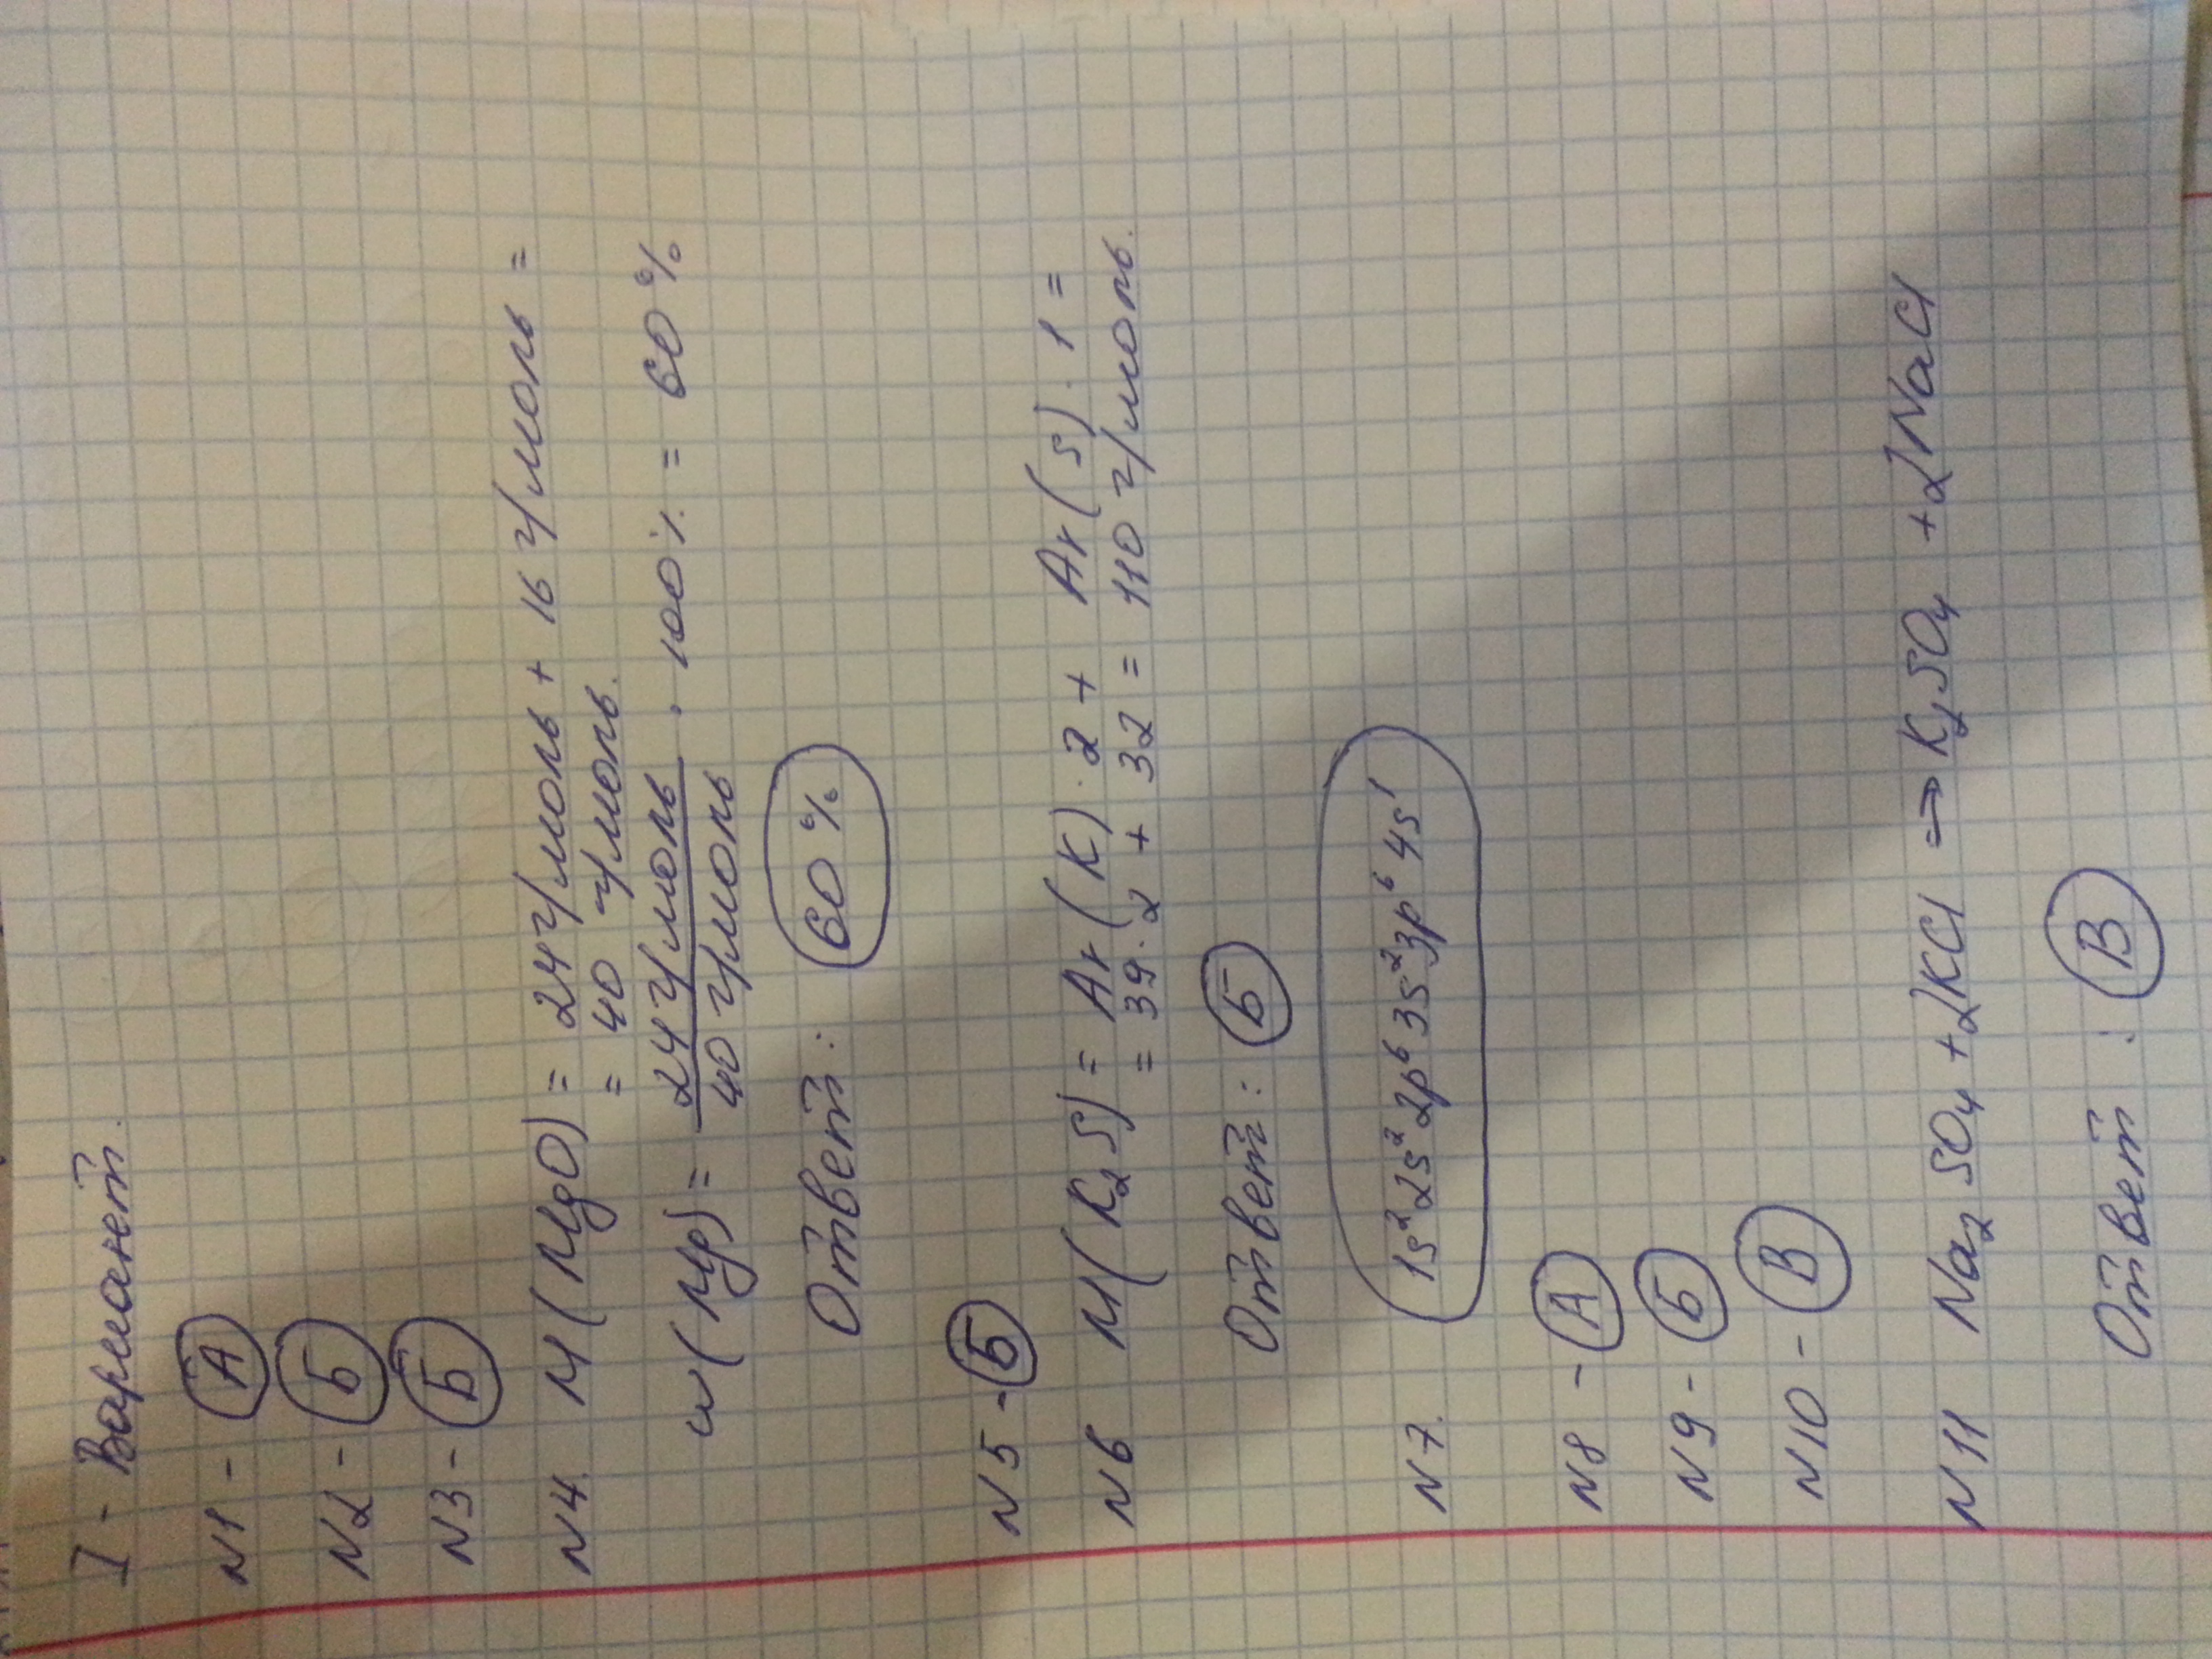 I - Вариант.
N1 - А
N2 - Б
N3 - Б
N4. M(MgO) = 24 г/моль + 16 г/моль =
= 40 г/моль.
w(Mg) = 24 г/моль / 40 г/моль · 100% = 60 %
Ответ: 60 %
N5 - Б
N6 M(K₂S) = Ar(K)·2 + Ar(S)·1 =
= 39·2 + 32 = 110 г/моль.
Ответ: Б
N7. 1s²2s²2p⁶3s²3p⁶4s¹
N8 - А
N9 - Б
N10 - В
N11 Na₂SO₄ + 2KCl → K₂SO₄ + 2NaCl
Ответ: В